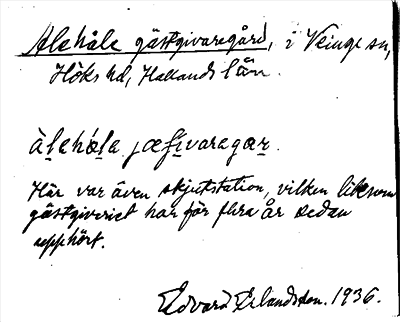 Alehåle gästgivaregård, i Veinge sn,
Höks hd, Hallands län.
àlehåla jæʃivaragær.
Här var även skjutsstation, vilken liksom
gästgiveriet har för flera år sedan
upphört.
Edvard Erlandsson. 1936.